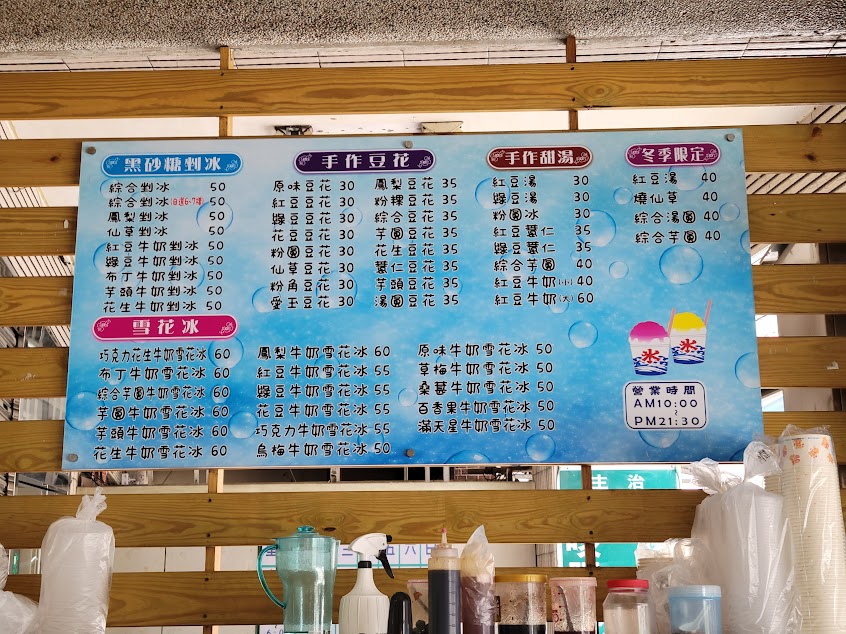 黑砂糖剉冰
綜合剉冰 50
綜合剉冰(自選6-7種) 50
鳳梨剉冰 50
仙草剉冰 50
紅豆牛奶剉冰 50
綠豆牛奶剉冰 50
布丁牛奶剉冰 50
芋頭牛奶剉冰 50
花生牛奶剉冰 50
手作豆花
原味豆花 30
紅豆豆花 30
綠豆豆花 30
花豆豆花 30
粉圓豆花 30
仙草豆花 30
粉角豆花 30
愛玉豆花 30
鳳梨豆花 35
粉粿豆花 35
綜合豆花 35
芋圓豆花 35
花生豆花 35
薏仁豆花 35
芋頭豆花 35
湯圓豆花 35
手作甜湯
紅豆湯 30
綠豆湯 30
粉圓冰 30
紅豆薏仁 35
綠豆薏仁 35
綜合芋圓 40
紅豆牛奶(小) 40
紅豆牛奶(大) 60
冬季限定
紅豆湯 40
燒仙草 40
綜合湯圓 40
綜合芋圓 40
雪花冰
巧克力花生牛奶雪花冰 60
布丁牛奶雪花冰 60
綜合芋圓牛奶雪花冰 60
芋圓牛奶雪花冰 60
芋頭牛奶雪花冰 60
花生牛奶雪花冰 60
鳳梨牛奶雪花冰 60
紅豆牛奶雪花冰 55
綠豆牛奶雪花冰 55
花豆牛奶雪花冰 55
巧克力牛奶雪花冰 50
烏梅牛奶雪花冰 50
原味牛奶雪花冰 50
草莓牛奶雪花冰 50
桑葚牛奶雪花冰 50
百香果牛奶雪花冰 50
滿天星牛奶雪花冰 50
冰
冰
營業時間
AM10:00
~
PM21:30
主治